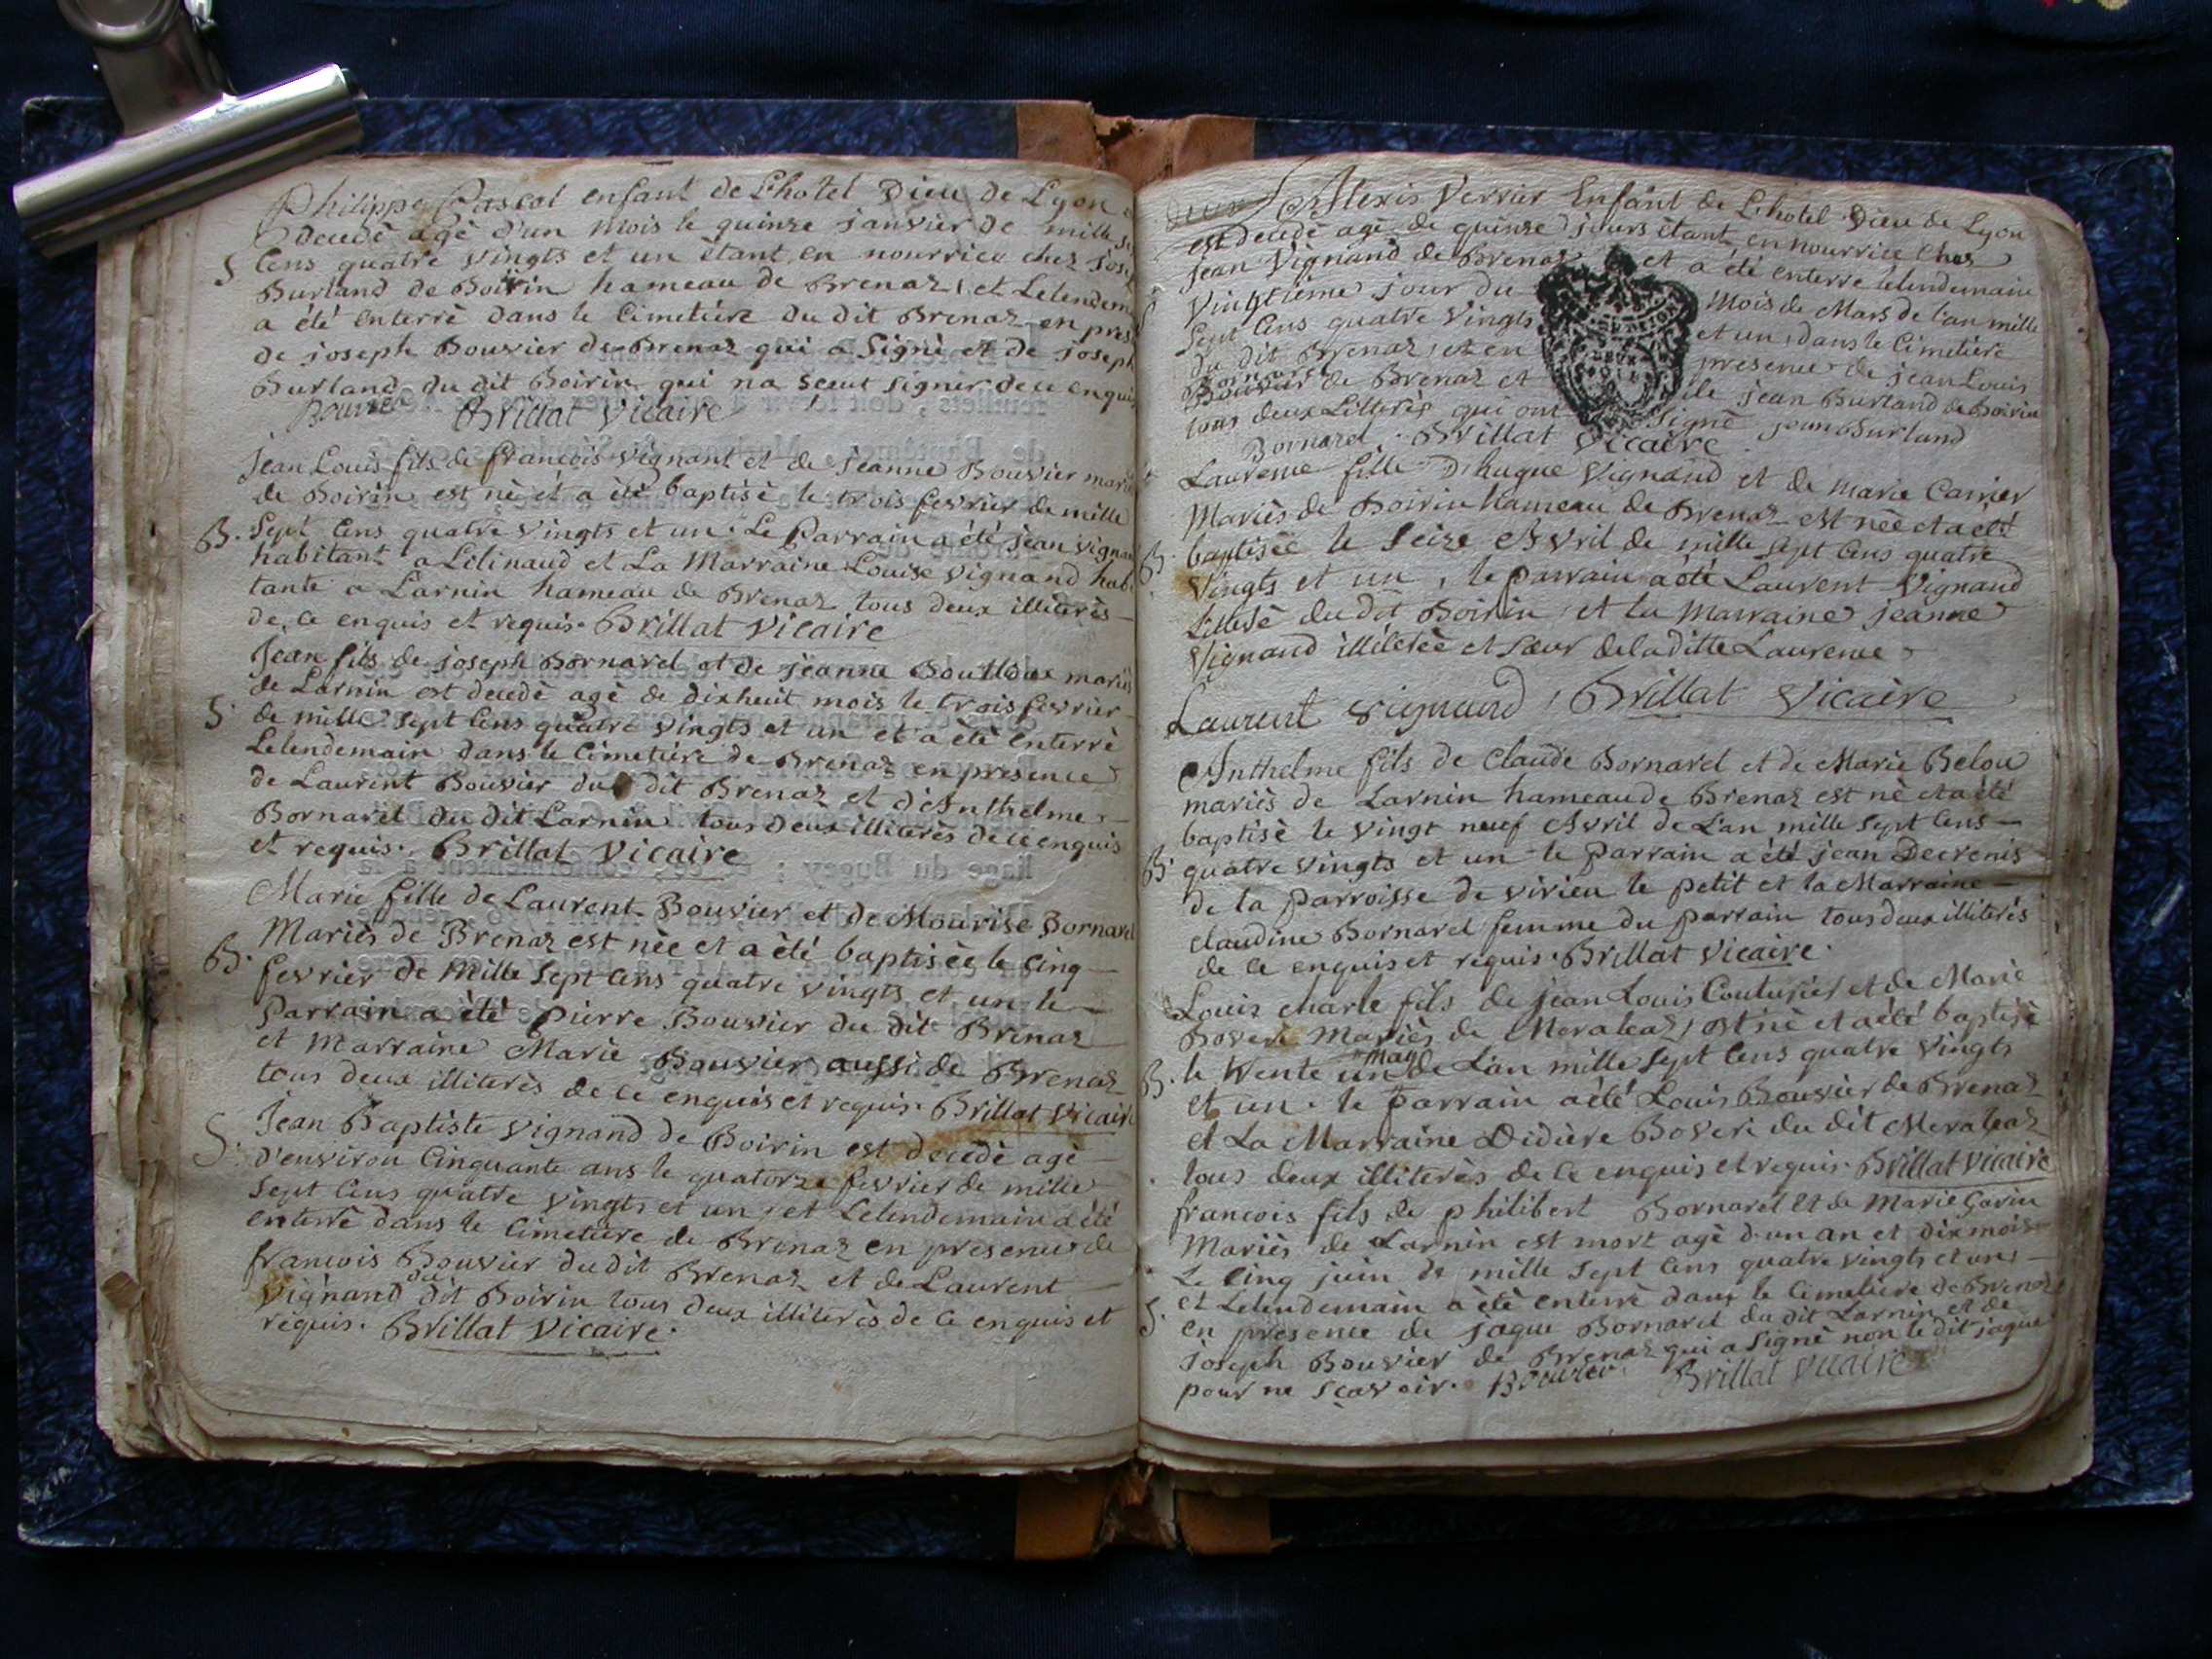 Philippe Pascal enfant de L'hotel Dieu de Lyon
decedè agè d'un mois le quinze janvier de mille
S Cens quatre vingts et un étant en nourrice chez
Burland de Boirin hameau de Brenaz, et Lelendem
a été enterrè dans le Cimetière du dit Brenaz en pres
de joseph Bouvier de Brenaz qui a Signè et de joseph
Burland du dit Boirin qui na sceut signer de ce enquis
Bouvier Brillat Vicaire
Jean Louis fils de francois vignant et de Jeanne Bouvier
de Boirin est nè et a été baptisè le trois fevrier de mille
B. Sept Cens quatre vingts et un. Le Parrain a été jean vignan
habitant a Lilinaud et La Marraine Louise vignand hab
tante a Larnin hameau de Brenaz tous deux illiterès
de ce enquis et requis. Brillat Vicaire
Jean fils de joseph Bornard et de jeanne mariés
de Larnin est decedè agè de dixhuit mois le trois fevrier
S. de mille sept Cens quatre vingts et un et a été enterrè
Lelendemain dans le Cimetière de Brenaz en presence
de Laurent Bouvier du dit Brenaz et d'Anthelme
Bornard du dit Larnin tous deux illiterès de ce enquis
et requis. Brillat Vicaire
Marie fille de Laurent Bouvier et de Mourise Bornard
Mariès de Brenaz est nèe et a été baptisèe le Cinq
B. fevrier de Mille Sept Cens quatre vingts et un le
Parrain a été pierre Bouvier du dit Brenaz
et marraine Marie Bouvier aussi de Brenaz
tous deux illiterès de ce enquis et requis. Brillat Vicaire
Jean Baptiste vignand de Boirin est decedè agè
S. d'environ Cinquante ans le quatorze fevrier de mille
Sept Cens quatre vingts et un, et Lelendemain a été
enterrè dans le Cimetière de Brenaz en presence de
francois Bouvier du dit Brenaz et de Laurent
Vignand du dit Boirin tous deux illiterès de ce enquis et
requis. Brillat Vicaire.
deux Alexis Verrier Enfant de L'hotel Dieu de Lyon
est decedè agè de quinze jours étant en nourrice Chez
jean Vignand de Brenaz et a été enterrè lelendemain
Vingtième jour du Mois de Mars de l'an mille
Sept Cens quatre Vingts et un, dans le Cimetière
du dit Brenaz, et en presence de jean Louis
Bornard
Bouvier de Brenaz et de jean Burland de Boirin
tous deux Litterès qui ont Signè jean Burland
Bornard. Brillat Vicaire
Laurence fille d'hugue Vignand et de marie Carrier
Mariès de Boirin hameau de Brenaz est nèe et a été
B. baptisèe le seize Avril de mille sept Cens quatre
Vingts et un, le parrain a été Laurent Vignaud
du dit Boirin et la Marraine jeanne
Vignaud et sœur de la ditte Laurence
Laurent vignand Brillat Vicaire
Anthelme fils de Claude Bornard et de Marie Belou
mariès de Larnin hameau de Brenaz est nè et a été
baptisè le vingt neuf Avril de L'an mille Sept Cens
B. quatre vingts et un le Parrain a été jean Decrenis
de la parroisse de virieu le petit et la Marraine
claudine Bornard femme du parrain tous deux illiterès
de ce enquis et requis. Brillat Vicaire.
Louis charle fils de jean Louis Couturier et de Marie
Bovere Mariès de est nè et a été baptisè
may
B. le trente un de L'an mille Sept Cens quatre vingts
et un. le parrain a été Louis Bouvier de Brenaz
et La Marraine Didière Bovere du dit
tous deux illiterès de ce enquis et requis. Brillat Vicaire
francois fils de philibert Bornard et de Marie Gorin
Mariès de Larnin est mort agè d'un an et dix mois
Le Cinq juin de mille Sept Cens quatre vingts et un
et Lelendemain a été enterrè dans le Cimetière de Brenaz
S. en presence de jaque Bornard du dit Larnin et de
joseph Bouvier de Brenaz qui a signè non le dit jaque
pour ne sçavoir. Bouvier Brillat Vicaire